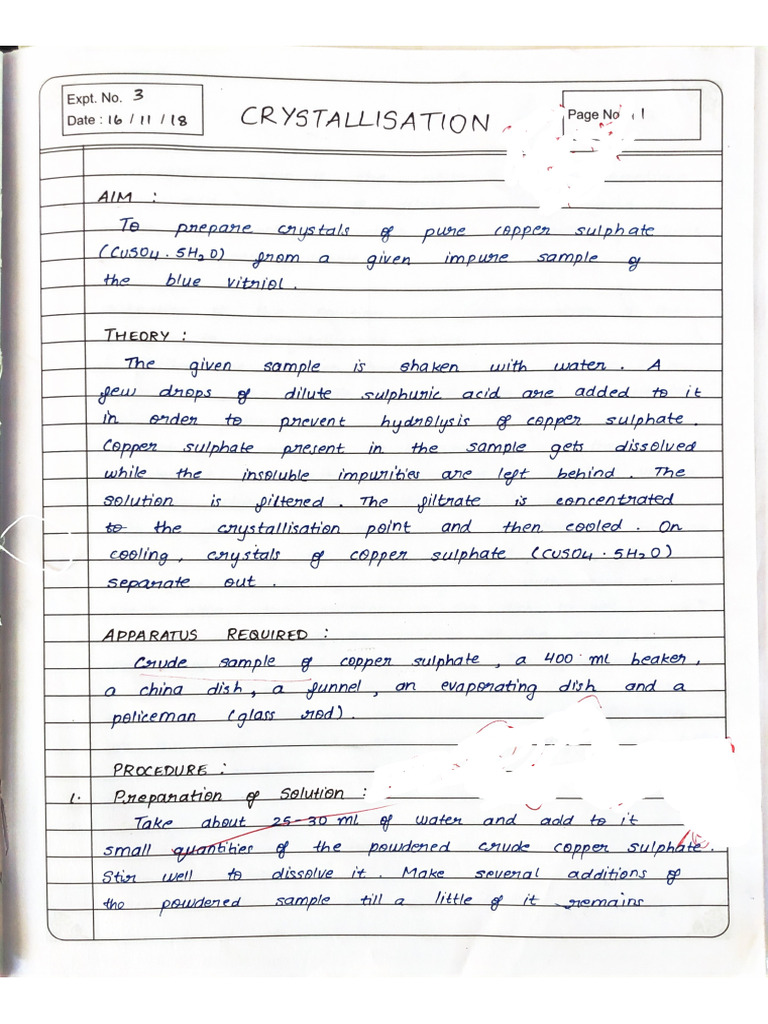 Expt. No. 3
Date : 16 / 11 / 18
CRYSTALLISATION
Page No 1
AIM :
To prepare crystals of pure copper sulphate
(CuSO4 . 5H2O) from a given impure sample of
the blue vitriol .
THEORY :
The given sample is shaken with water . A
few drops of dilute sulphuric acid are added to it
in order to prevent hydrolysis of copper sulphate .
Copper sulphate present in the sample gets dissolved
while the insoluble impurities are left behind . The
solution is filtered . The filtrate is concentrated
to the crystallisation point and then cooled . On
cooling , crystals of copper sulphate (CuSO4 . 5H2O)
separate out .
APPARATUS REQUIRED :
Crude sample of copper sulphate , a 400 ml beaker ,
a china dish , a funnel , an evaporating dish and a
policeman (glass rod) .
PROCEDURE :
1. Preparation of Solution :
Take about 25-30 ml of water and add to it
small quantities of the powdered crude copper sulphate .
Stir well to dissolve it . Make several additions of
the powdered sample till a little of it remains